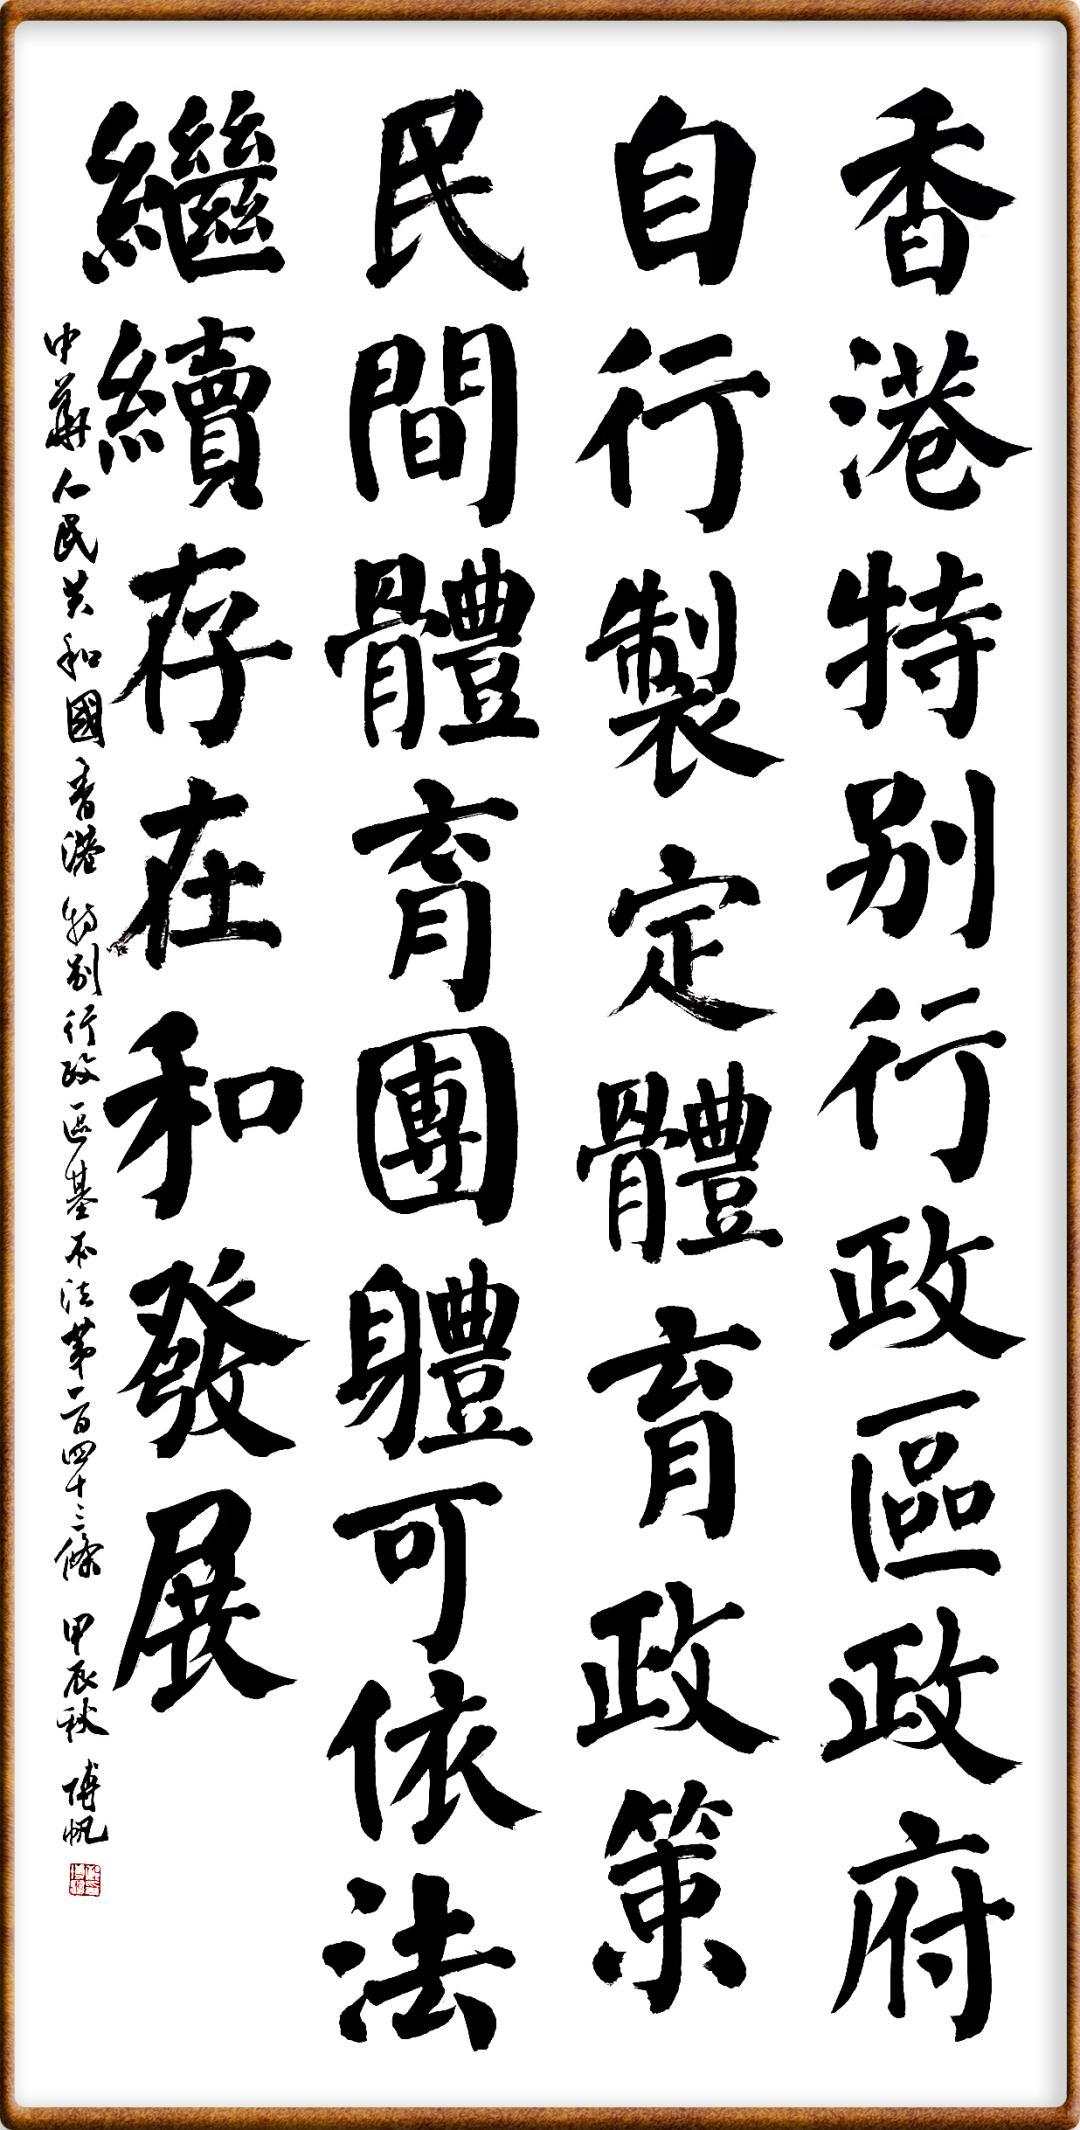 香港特别行政區政府
自行製定體育政策
民間體育團軆可依法
繼續存在和發展
中華人民共和國香港特别行政區基本法第一百四十三條 甲辰秋 博帆